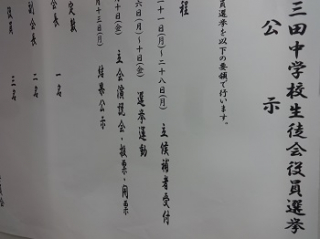 三田中学校生徒会役員選挙
公示
員選挙を以下の要領で行います。
程
月二十一日(月)～二十八日(月) 立候補者受付
六日(月)～十日(金) 選挙運動
十日(金) 立会演説会・投票・開票
月十三日(月) 結果公示
定数
会長 一名
副会長 二名
役員 三名